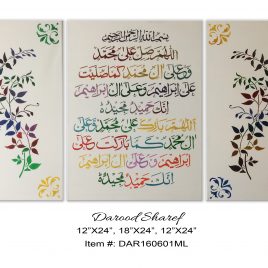 بسم الله الرحمن الرحيم
اللهم صل على محمد
وعلى آل محمد كما صليت
على ابراهيم وعلى آل ابراهيم
انك حميد مجيد
اللهم بارك على محمد وعلى
آل محمد كما باركت على
ابراهيم وعلى آل ابراهيم
انك حميد مجيد
Darood Sharef
12"X24", 18"X24", 12"X24"
Item #: DAR160601ML